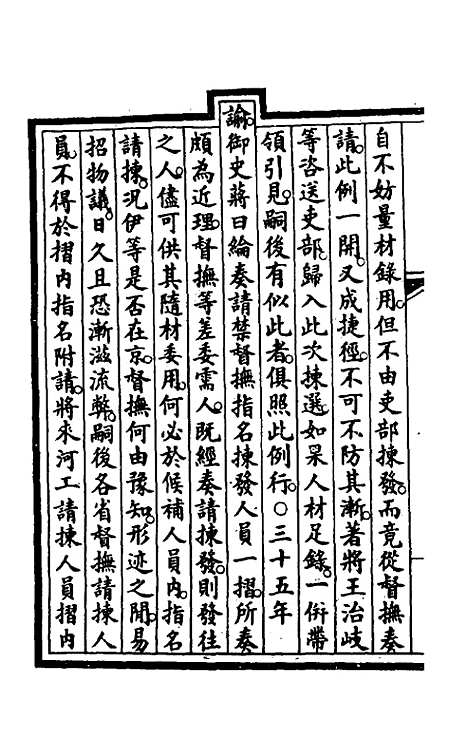 自不妨量材錄用。但不由吏部揀發。而竟從督撫奏
請。此例一開。又成捷徑。不可不防其漸。著將王治岐
等咨送吏部。歸入此次揀選。如果人材足錄。一併帶
領引見。嗣後有似此者。俱照此例行。○三十五年
諭。御史蔣曰綸奏請禁督撫指名揀發人員一摺。所奏
頗為近理。督撫等差委需人。既經奏請揀發。則發往
之人。儘可供其隨材委用。何必於候補人員內。指名
請揀。況伊等是否在京。督撫何由豫知。形迹之閒。易
招物議。日久且恐漸滋流弊。嗣後各省督撫請揀人
員。不得於摺內指名附請。將來河工請揀人員摺內